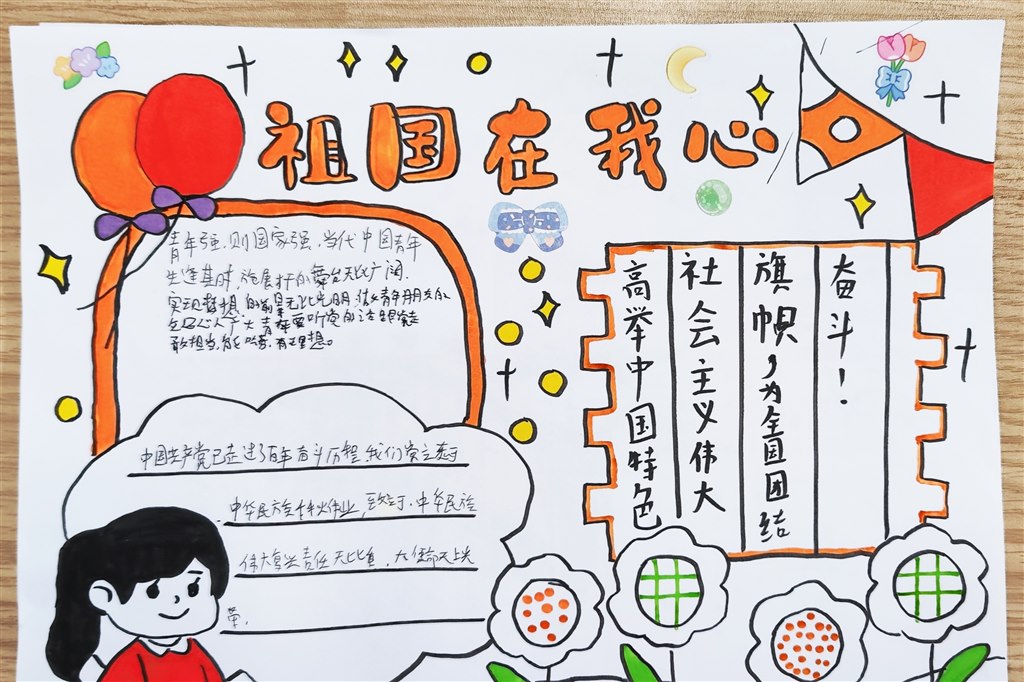 祖国在我心
青年强,则国家强,当代中国青年
生逢其时,施展才的舞台无比广阔,
实现梦想的前景无比光明,
广大青年要听党的话跟党走
敢担当,能吃苦,有理想。
中国共产党已走过了百年奋斗历程,我们党立志于
中华民族伟业,致力于,中华民族
伟大复兴责任无比重,大使命无上光
荣。
高举中国特色
社会主义伟大
旗帜,为全国团结
奋斗!